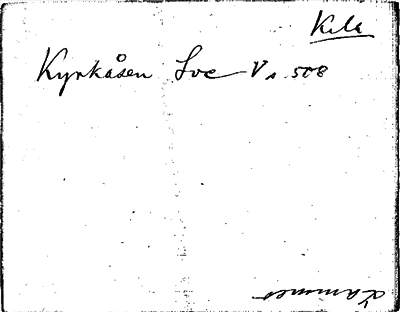 Kila
Kyrkåsen Soc V s. 508
Lammes